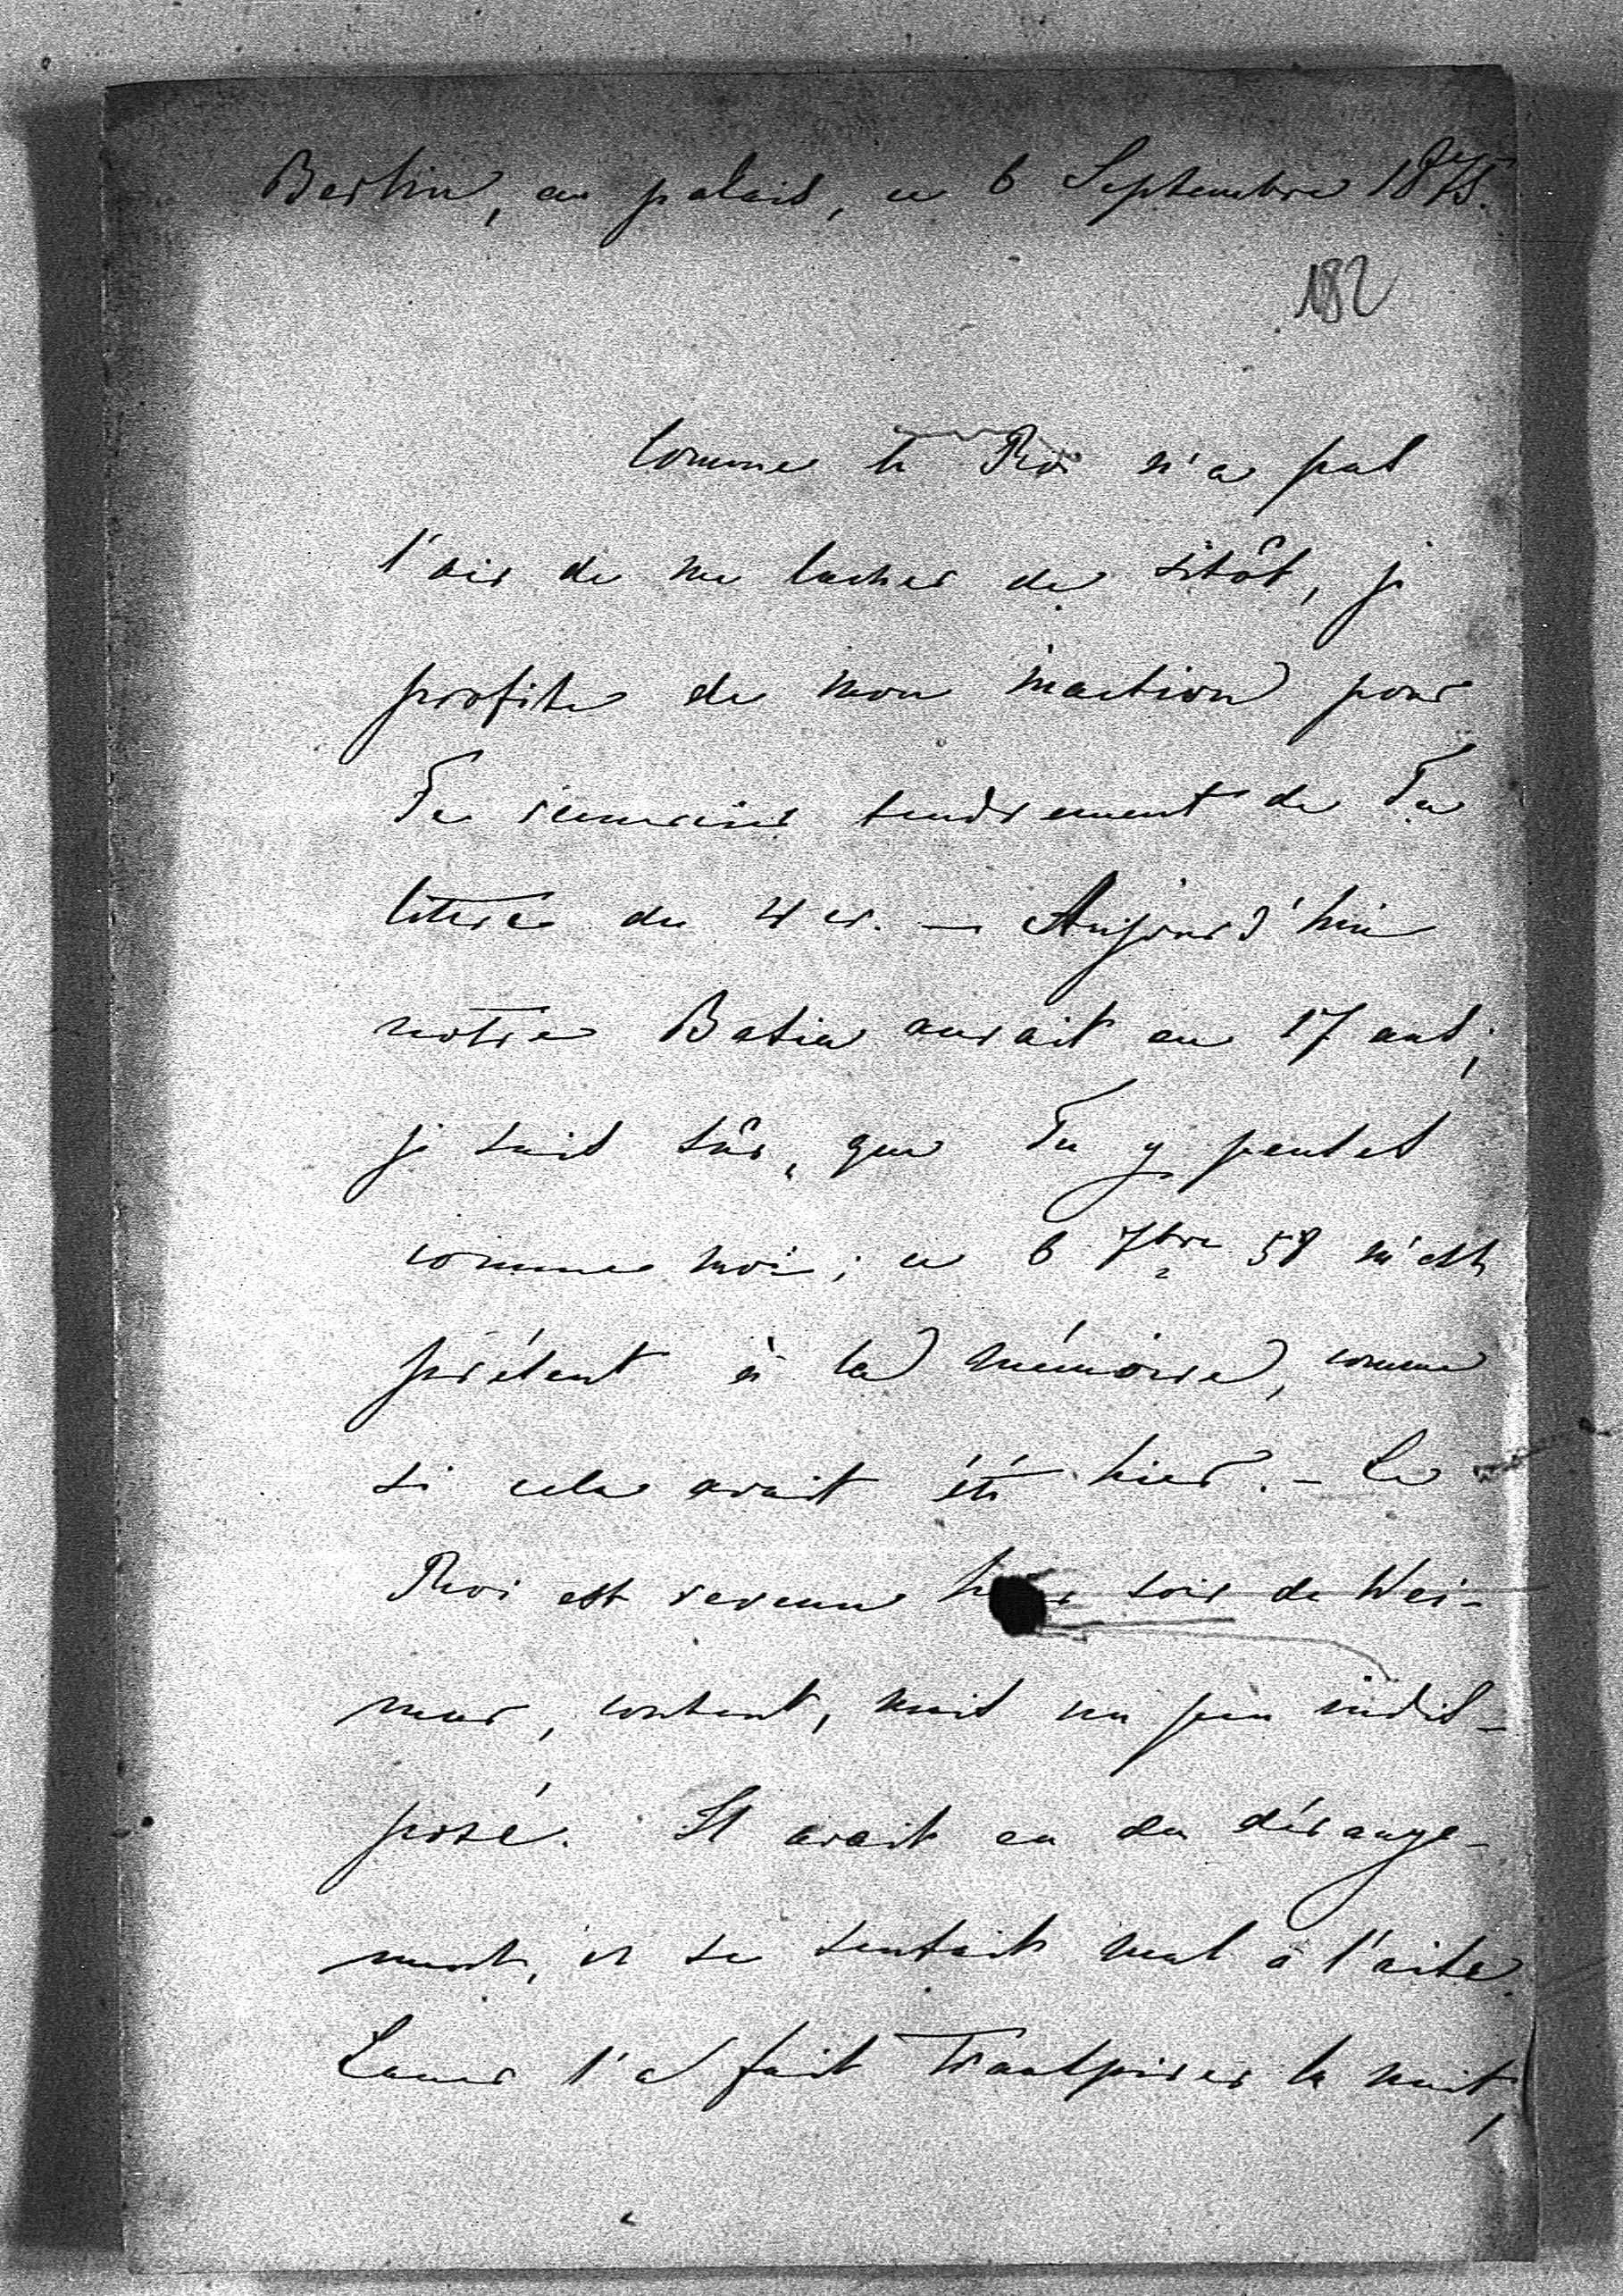 Berlin, au palais, ce 6 Septembre 1875.
182
Comme le Roi n'a pas
l'air de me lacher de sitôt, je
profite de mon inaction pour
Te remercier tendrement de Ta
lettre du 4 cr. — Aujourd'hui
notre Basia aurait eu 17 ans;
je suis sûr, que Tu y penses
comme moi; ce 6 7bre 58 m'est
présent à la mémoire, comme
si cela avait été hier. — Le
Roi est revenu hier soir de Wei-
mar, content, mais un peu indis-
posé. Il avait eu du dérange-
ment, et se sentait mal à l'aise.
Lauer l'a fait transpirer la nuit,